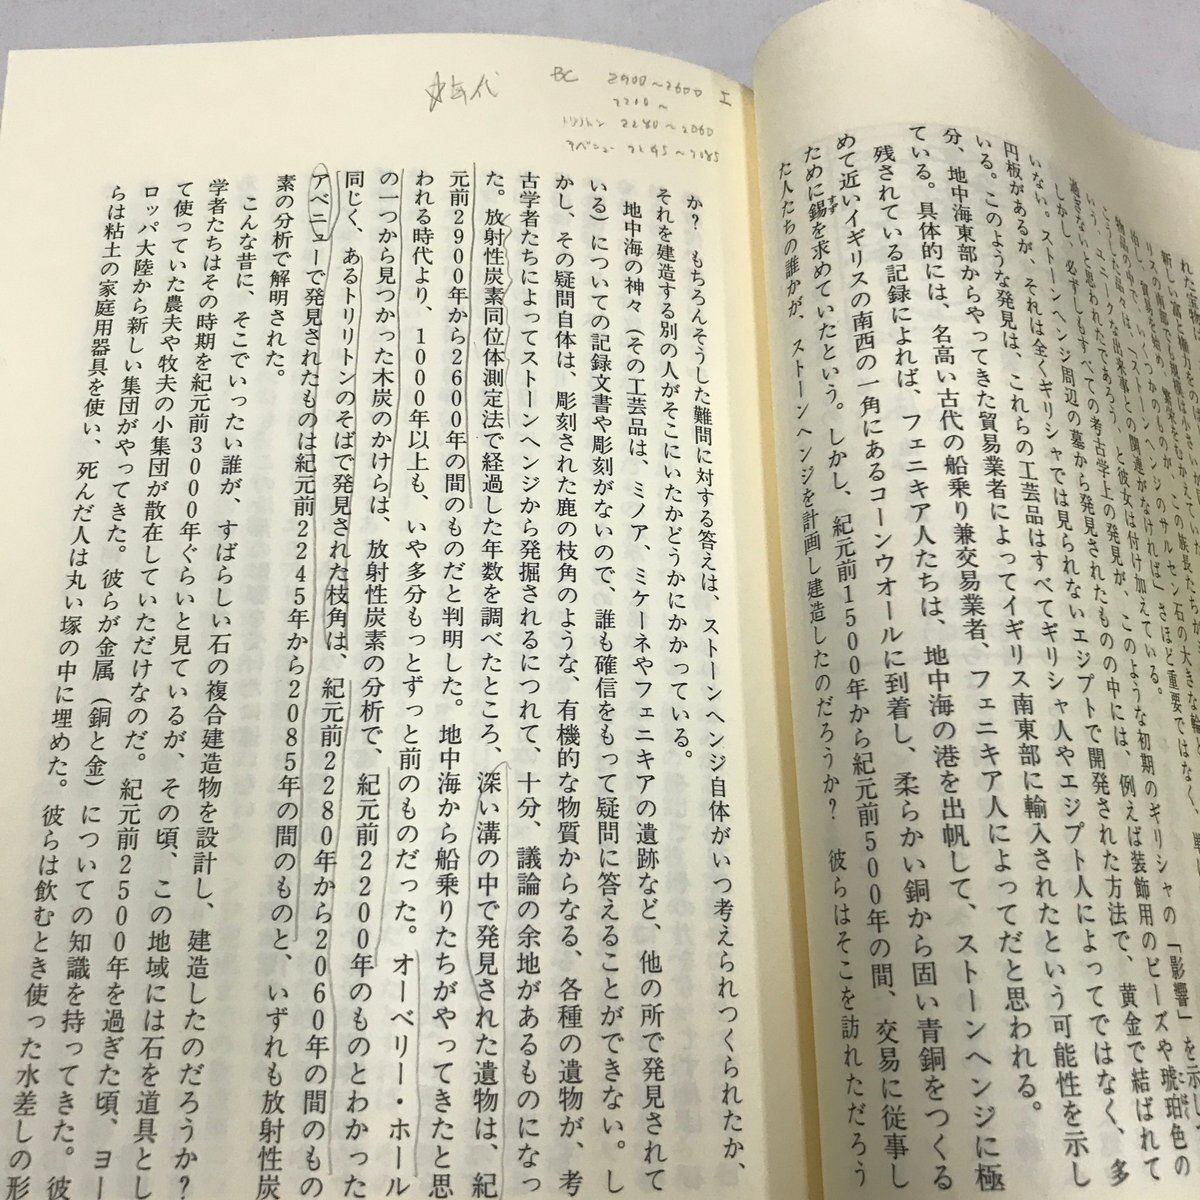 リスの南部でも規模は小さいが、この族長たちが
申し、貿易を始め、繁栄をもかえていた
物品の中で、いくつかのものが、初期のギリシャの「影響」を示し
こうした品々は、「ストーンヘンジのサルセン石の大きな輪
いう、ユニークな出来事との関連がなければ」さほど重要ではなく、
過ぎないと思われたであろう、と彼女は付け加えている。
しかし、必ずしもすべての考古学上の発見が、このような初期のギリシャの
いない。ストーンヘンジ周辺の墓から発見されたものの中には、例えば装飾用のビーズや琥珀色の
円板があるが、それは全くギリシャでは見られないエジプトで開発された方法で、黄金で結ばれて
いる。このような発見は、これらの工芸品はすべてギリシャ人やエジプト人によってではなく、多
分、地中海東部からやってきた貿易業者によってイギリス南東部に輸入されたという可能性を示し
ている。具体的には、名高い古代の船乗り兼交易業者、フェニキア人によってだと思われる。
残されている記録によれば、フェニキア人たちは、地中海の港を出帆して、ストーンヘンジに極
めて近いイギリスの南西の一角にあるコーンウオールに到着し、柔らかい銅から固い青銅をつくる
ために錫を求めていたという。しかし、紀元前1500年から紀元前500年の間、交易に従事し
た人たちの誰かが、ストーンヘンジを計画し建造したのだろうか? 彼らはそこを訪れただろう
か? もちろんそうした難問に対する答えは、ストーンヘンジ自体がいつ考えられつくられたか、
それを建造する別の人がそこにいたかどうかにかかっている。
地中海の神々(その工芸品は、ミノア、ミケーネやフェニキアの遺跡など、他の所で発見されて
いる)についての記録文書や彫刻がないので、誰も確信をもって疑問に答えることができない。し
かし、その疑問自体は、彫刻された鹿の枝角のような、有機的な物質からなる、各種の遺物が、考
古学者たちによってストーンヘンジから発掘されるにつれて、十分、議論の余地があるものになっ
た。放射性炭素同位体測定法で経過した年数を調べたところ、深い溝の中で発見された遺物は、紀
元前2900年から2600年の間のものだと判明した。地中海から船乗りたちがやってきたと思
われる時代より、1000年以上も、いや多分もっとずっと前のものだった。オーベリー・ホール
の一つから見つかった木炭のかけらは、放射性炭素の分析で、紀元前2200年のものとわかった
同じく、あるトリリトンのそばで発見された枝角は、紀元前2280年から2060年の間のもの
アベニューで発見されたものは紀元前2245年から2085年の間のものと、いずれも放射性炭
素の分析で解明された。
こんな昔に、そこでいったい誰が、すばらしい石の複合建造物を設計し、建造したのだろうか?
学者たちはその時期を紀元前3000年ぐらいと見ているが、その頃、この地域には石を道具とし
て使っていた農夫や牧夫の小集団が散在していただけなのだ。紀元前2500年を過ぎた頃、ヨー
ロッパ大陸から新しい集団がやってきた。彼らが金属(銅と金)についての知識を持ってきた。彼
らは粘土の家庭用器具を使い、死んだ人は丸い塚の中に埋めた。彼らは飲むとき使った水差しの形
年代
BC 2900~2600
2280~2060